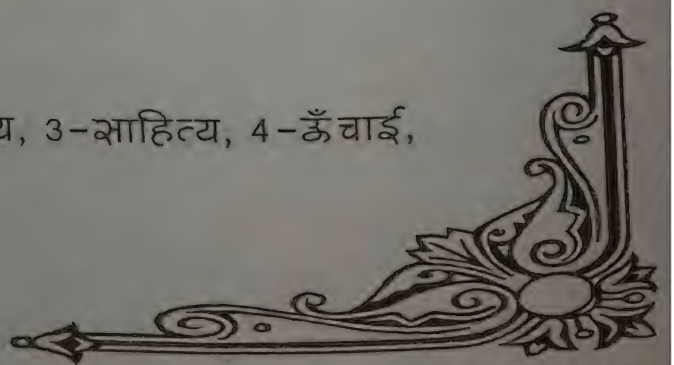 य, 3-साहित्य, 4-ऊँचाई,